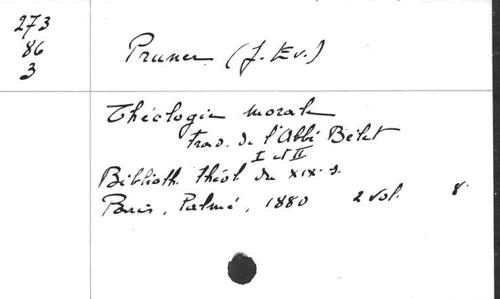 273
86
3
Pruner (J. Ev.)
Théologie morale
trad. de l'Abbé Bélet
I et II
Biblioth. théol. du XIX. s.
Paris, Palmé, 1880 2 vol. 8°